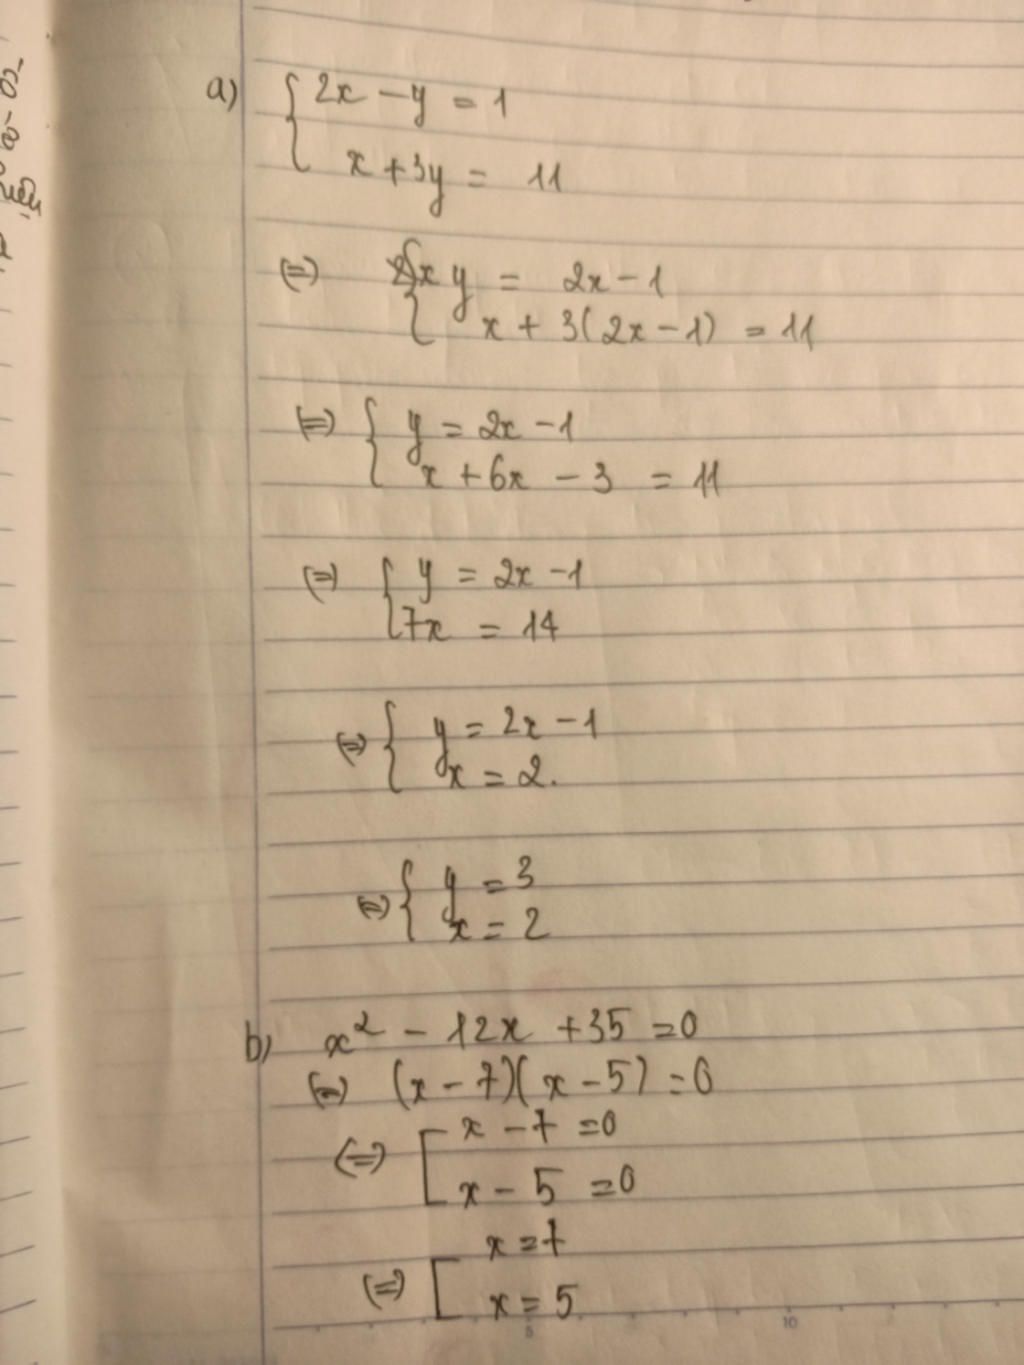 a) { 2x - y = 1
x + 3y = 11
(=) { y = 2x - 1
x + 3(2x - 1) = 11
(=) { y = 2x - 1
x + 6x - 3 = 11
(=) { y = 2x - 1
7x = 14
(=) { y = 2x - 1
x = 2.
(=) { y = 3
x = 2
b) x² - 12x + 35 = 0
(=) (x - 7)(x - 5) = 0
(=) [ x - 7 = 0
x - 5 = 0
(=) [ x = 7
x = 5
5 10